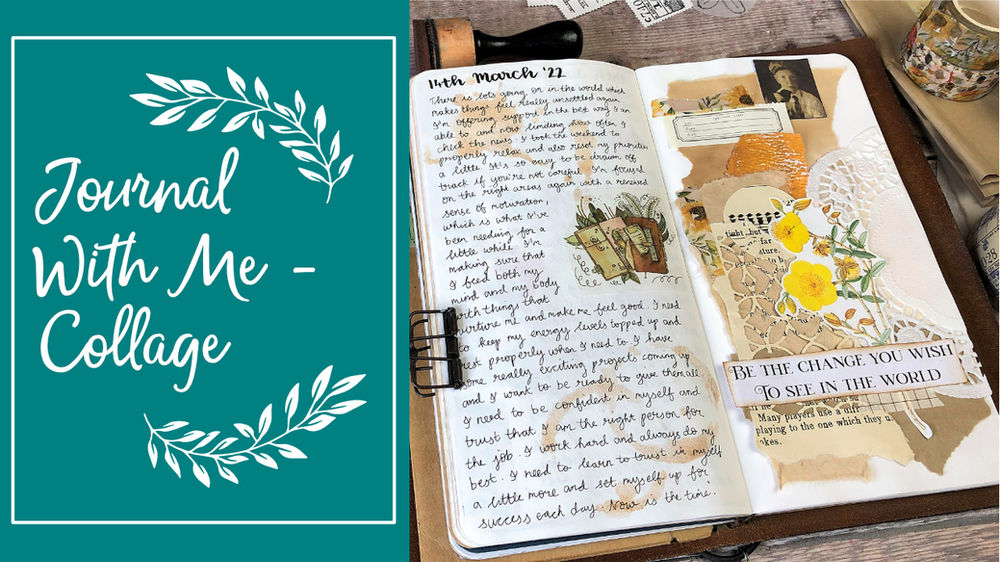 Journal
With Me -
Collage
14th March '22
There is lots going on in the world which
makes things feel really unsettled again.
I'm offering support in the best way I am
able to and now limiting how often I
check the news. I took the weekend to
properly relax and also reset my priorities
a little. It's so easy to be drawn off
track if you're not careful. I'm focused
on the right areas again with a renewed
sense of motivation,
which is what I've
been needing for a
little while. I'm
making sure that
I feed both my
mind and my body
with things that
nurture me and make me feel good. I need
to keep my energy levels topped up and
rest properly when I need to. I have
some really exciting projects coming up
and I want to be ready to give them all.
I need to be confident in myself and
trust that I am the right person for
the job. I work hard and always do my
best. I need to learn to trust in myself
a little more and set myself up for
success each day. Now is the time.
far
sture,
BE THE CHANGE YOU WISH
TO SEE IN THE WORLD
Many players use a diff
playing to the one which they u
okes.